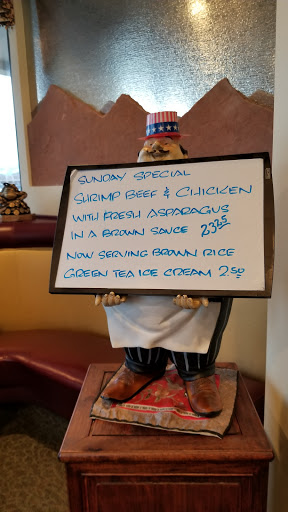 SUNDAY SPECIAL
SHRIMP BEEF & CHICKEN
WITH FRESH ASPARAGUS
IN A BROWN SAUCE 23.25
NOW SERVING BROWN RICE
GREEN TEA ICE CREAM 2.50